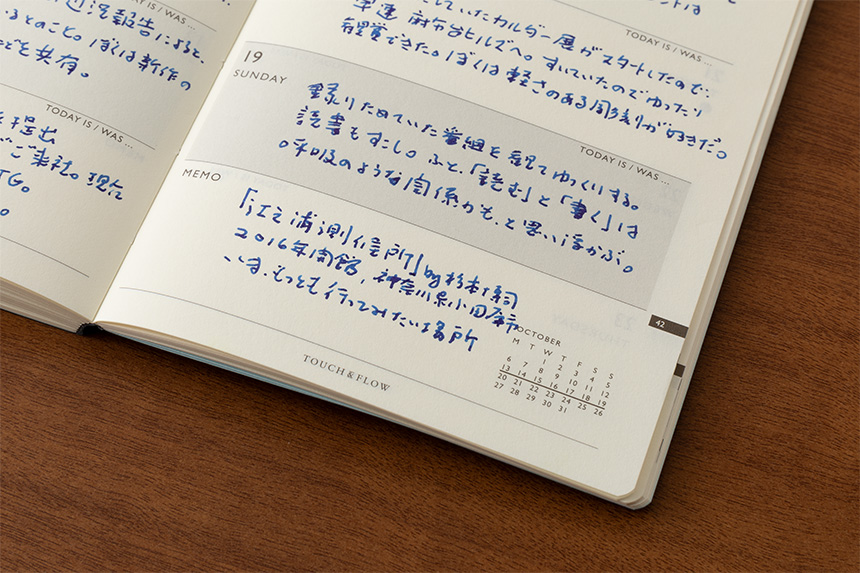 近況報告によると、
るとのこと。ぼくは新作の
どを共有。
TODAY IS / WAS ...
提出
ご来社。現合
TG。
していたカルダー展がスタートしたので、
早速 麻布台ヒルズへ。すいていたのでゆったり
観覚できた。ぼくは軽さのある彫刻が好きだ。
TODAY IS / WAS ...
19
SUNDAY
TODAY IS / WAS ...
録りためていた番組を観てゆっくりする。
読書もすこし。ふと、「読む」と「書く」は
呼吸のような関係かも、と思い浮かぶ。
MEMO
「江之浦測候所」by 杉本博司
2016年開館, 神奈川県小田原市
いま、もっとも行ってみたい場所
42
OCTOBER
M T W T F S S
1 2 3 4 5
6 7 8 9 10 11 12
13 14 15 16 17 18 19
20 21 22 23 24 25 26
27 28 29 30 31
TOUCH & FLOW